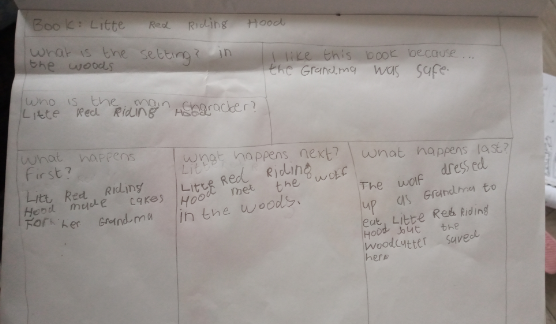 Book: Litte Red Riding Hood
What is the setting? in
the woods
I like this book because...
the Grandma was safe.
Who is the main character?
Litte Red Riding Hood
What happens
first?
Litt Red Riding
Hood made cakes
For her Grandma
What happens next?
Litte Red Riding
Hood met the wolf
in the woods.
What happens last?
The wolf dressed
up as Grandma to
eat Litte Red Riding
Hood but the
woodcutter saved
here